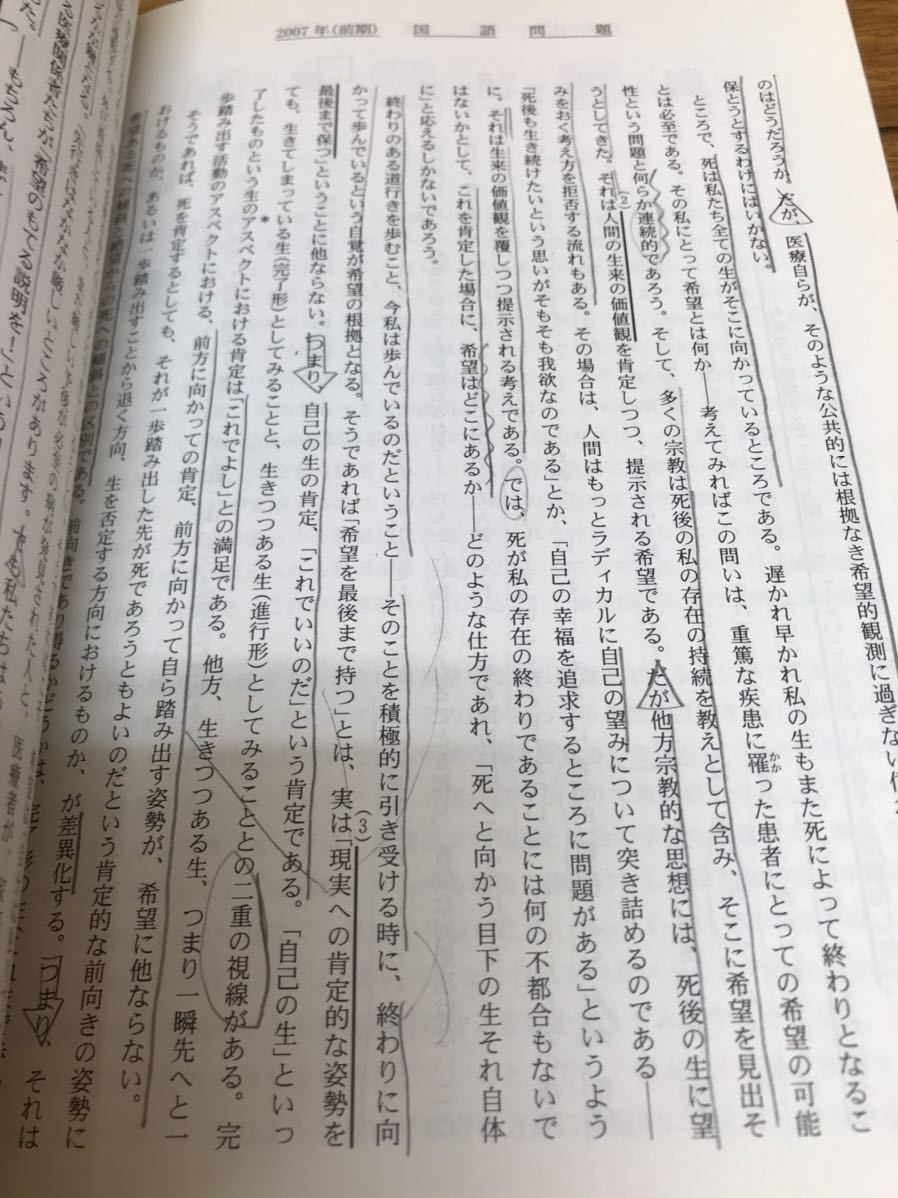 2007年(前期) 国語問題
のはどうだろうか。だが、医療自らが、そのような公共的には根拠なき希望的観測に過ぎない
保とうとするわけにはいかない。
ところで、死は私たち全ての生がそこに向かっているところである。遅かれ早かれ私の生もまた死によって終わりとなるこ
とは必至である。その私にとって希望とは何か――考えてみればこの問いは、重篤な疾患に罹った患者にとっての希望の可能
かか
性という問題と何らか連続的であろう。そして、多くの宗教は死後の私の存在の持続を教えとして含み、そこに希望を見出そ
うとしてきた。それは人間の生来の価値観を肯定しつつ、提示される希望である。だが他方宗教的な思想には、死後の生に望
(2)
みをおく考え方を拒否する流れもある。その場合は、人間はもっとラディカルに自己の望みについて突き詰めるのである――
「死後も生き続けたいという思いがそもそも我欲なのである」とか、「自己の幸福を追求するところに問題がある」というよう
に。それは生来の価値観を覆しつつ提示される考えである。では、死が私の存在の終わりであることには何の不都合もないで
はないかとして、これを肯定した場合に、希望はどこにあるか――どのような仕方であれ、「死へと向かう目下の生それ自体
に」と応えるしかないであろう。
終わりのある道行きを歩むこと、今私は歩んでいるのだということ――そのことを積極的に引き受ける時に、終わりに向
かって歩んでいるという自覚が希望の根拠となる。そうであれば「希望を最後まで持つ」とは、実は「現実への肯定的な姿勢を
(3)
最後まで保つ」ということに他ならない。つまり、自己の生の肯定、「これでいいのだ」という肯定である。「自己の生」といっ
ても、生きてしまっている生(完了形)としてみることと、生きつつある生(進行形)としてみることとの二重の視線がある。完
了したものという生のアスペクトにおける肯定は「これでよし」との満足である。他方、生きつつある生、つまり一瞬先へと一
*
歩踏み出す活動のアスペクトにおける、前方に向かっての肯定、前方に向かって自ら踏み出す姿勢が、希望に他ならない。
そうであれば、死を肯定するとしても、それが一歩踏み出した先が死であろうともよいのだという肯定的な前向きの姿勢に
おけるものか、あるいは一歩踏み出すことから退く方向、生を否定する方向におけるものか、が差異化する。つまり、それは
希望ある死への傾斜と絶望からの死への傾斜との区別である。前向きであり得るかどうかは、完了形の
る医療関係者たちが「希望のもてる説明を!」という
もちろん、
ところがあります。でも私たちは
医療者が、